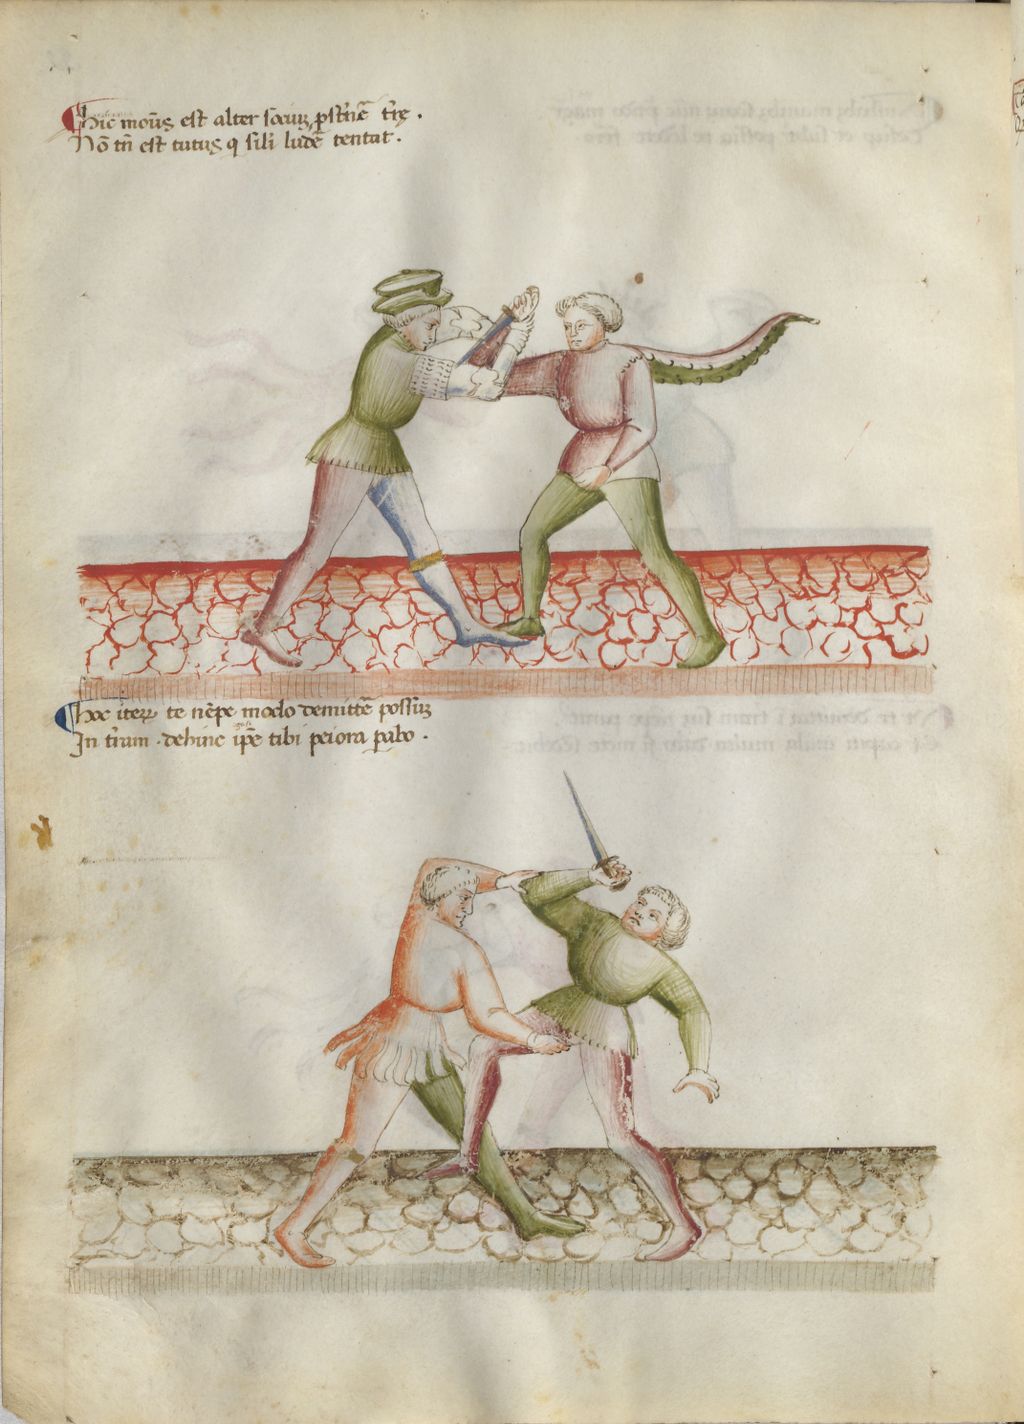 Hic modus est alter socium prosternere terre.
Nō tn̄ est tutus q̄ sili ludē tentat.
Hoc iterꝝ te nēpe modo demittē possuꝫ
In trram. dehinc ip̄e tibi peiora parabo.